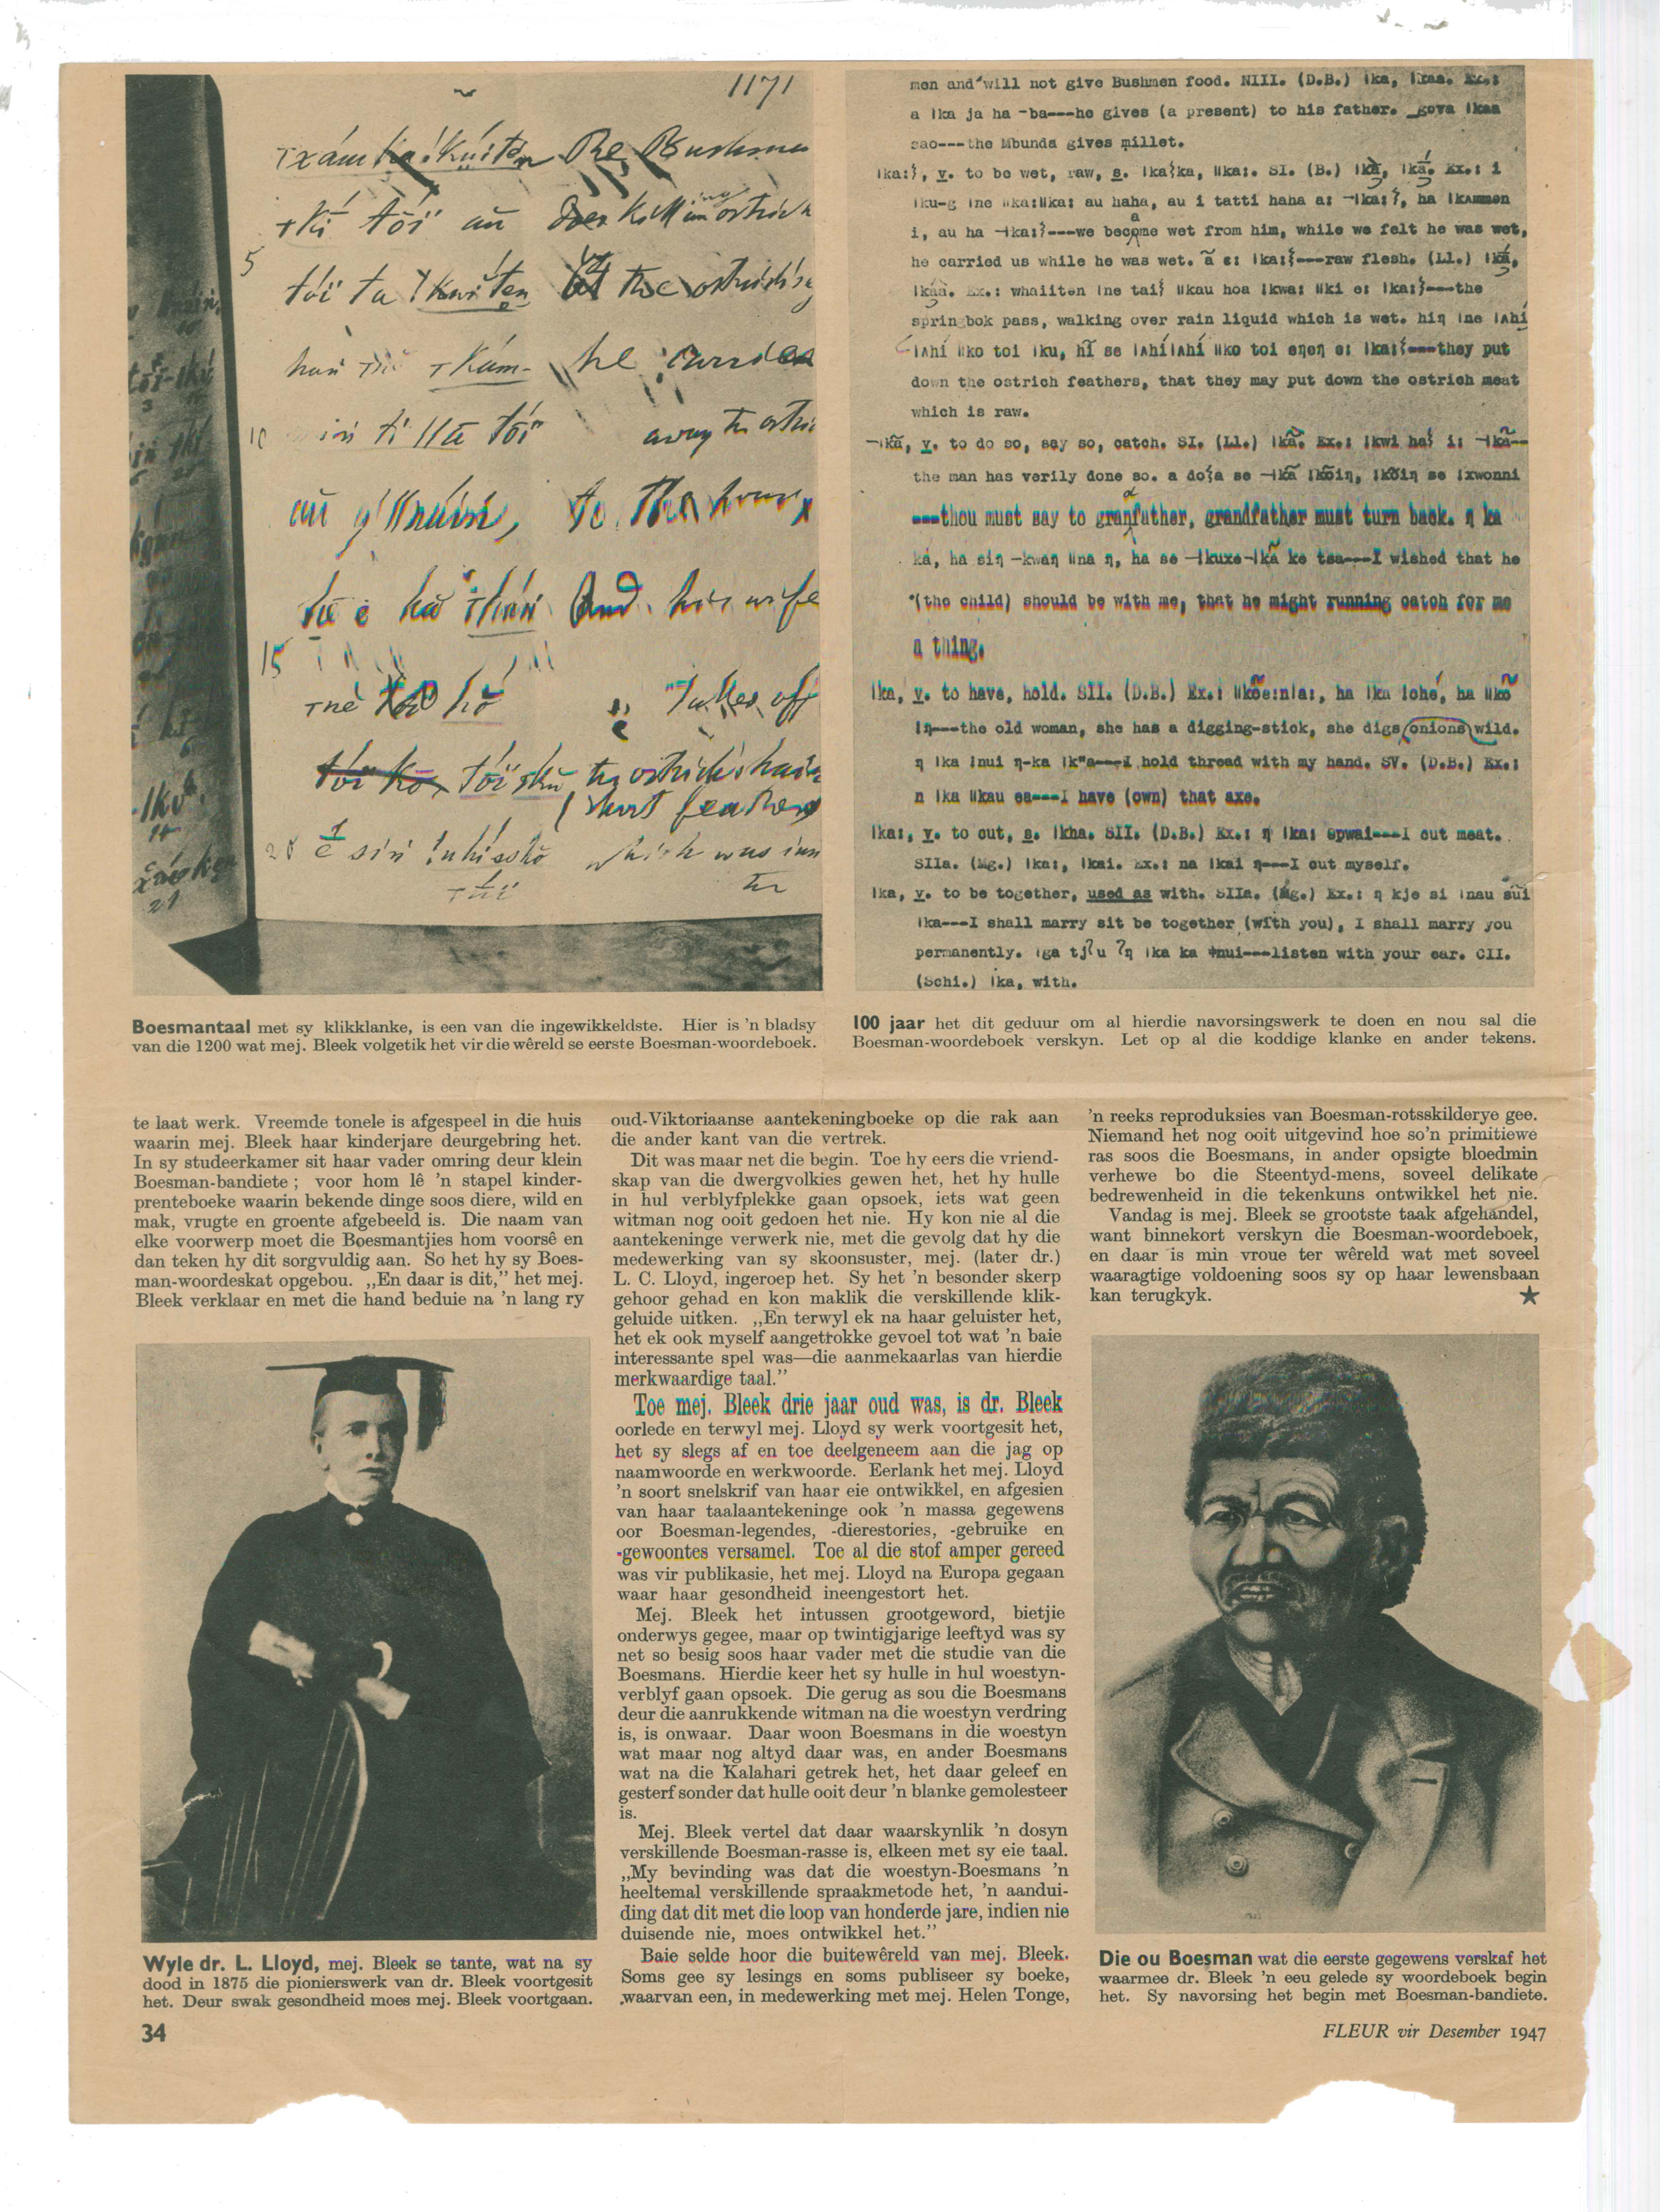 1171
The Bushman
tóï aŭ Killing an ostrich
5
tóï ta the ostrich's
he carries
10
away the ostri
to the house,
And his wife
15
hŏ takes off
the ostrich's hair
(short feathers
which was inn
the
men and will not give Bushmen food. NIII. (D.B.)
a ǀka ja ha -ba---he gives (a present) to his father.
sao---the Mbunda gives millet.
v. to be wet, raw, s. SI. (B.) Ex.: i
au haha, au i tatti haha a:
i, au ha ---we became wet from him, while we felt he was wet,
he carried us while he was wet. ---raw flesh. (Ll.)
Ex.: whaiiten ǀne ---the
springbok pass, walking over rain liquid which is wet.
---they put
down the ostrich feathers, that they may put down the ostrich meat
which is raw.
v. to do so, say so, catch. SI. (Ll.) Ex.:
the man has verily done so.
---thou must say to grandfather, grandfather must turn back. ŋ ka
---I wished that he
(the child) should be with me, that he might running catch for me
a thing.
ǀka, v. to have, hold. SII. (D.B.) Ex.:
---the old woman, she has a digging-stick, she digs onions wild.
---I hold thread with my hand. SV. (D.B.) Ex.:
---I have (own) that axe.
ǀka:, v. to cut, s. ǀkha. SII. (D.B.) Ex.: ŋ ǀka: ---I cut meat.
SIIa. (Mg.) ǀka:, ǀkai. Ex.: na ǀkai ŋ---I cut myself.
ǀka, v. to be together, used as with. SIIa. (Mg.) Ex.: ŋ kje si
ǀka---I shall marry sit be together (with you), I shall marry you
permanently. ---listen with your ear. CII.
(Schi.) ǀka, with.
Boesmantaal met sy klikklanke, is een van die ingewikkeldste. Hier is 'n bladsy
van die 1200 wat mej. Bleek volgetik het vir die wêreld se eerste Boesman-woordeboek.
100 jaar het dit geduur om al hierdie navorsingswerk te doen en nou sal die
Boesman-woordeboek verskyn. Let op al die koddige klanke en ander tekens.
te laat werk. Vreemde tonele is afgespeel in die huis
waarin mej. Bleek haar kinderjare deurgebring het.
In sy studeerkamer sit haar vader omring deur klein
Boesman-bandiete ; voor hom lê 'n stapel kinder-
prenteboeke waarin bekende dinge soos diere, wild en
mak, vrugte en groente afgebeeld is. Die naam van
elke voorwerp moet die Boesmantjies hom voorsê en
dan teken hy dit sorgvuldig aan. So het hy sy Boes-
man-woordeskat opgebou. „En daar is dit,” het mej.
Bleek verklaar en met die hand beduie na 'n lang ry
oud-Viktoriaanse aantekeningboeke op die rak aan
die ander kant van die vertrek.
Dit was maar net die begin. Toe hy eers die vriend-
skap van die dwergvolkies gewen het, het hy hulle
in hul verblyfplekke gaan opsoek, iets wat geen
witman nog ooit gedoen het nie. Hy kon nie al die
aantekeninge verwerk nie, met die gevolg dat hy die
medewerking van sy skoonsuster, mej. (later dr.)
L. C. Lloyd, ingeroep het. Sy het 'n besonder skerp
gehoor gehad en kon maklik die verskillende klik-
geluide uitken. „En terwyl ek na haar geluister het,
het ek ook myself aangetrokke gevoel tot wat 'n baie
interessante spel was—die aanmekaarlas van hierdie
merkwaardige taal.”
Toe mej. Bleek drie jaar oud was, is dr. Bleek
oorlede en terwyl mej. Lloyd sy werk voortgesit het,
het sy slegs af en toe deelgeneem aan die jag op
naamwoorde en werkwoorde. Eerlank het mej. Lloyd
'n soort snelskrif van haar eie ontwikkel, en afgesien
van haar taalaantekeninge ook 'n massa gegewens
oor Boesman-legendes, -dierestories, -gebruike en
-gewoontes versamel. Toe al die stof amper gereed
was vir publikasie, het mej. Lloyd na Europa gegaan
waar haar gesondheid ineengestort het.
Mej. Bleek het intussen grootgeword, bietjie
onderwys gegee, maar op twintigjarige leeftyd was sy
net so besig soos haar vader met die studie van die
Boesmans. Hierdie keer het sy hulle in hul woestyn-
verblyf gaan opsoek. Die gerug as sou die Boesmans
deur die aanrukkende witman na die woestyn verdring
is, is onwaar. Daar woon Boesmans in die woestyn
wat maar nog altyd daar was, en ander Boesmans
wat na die Kalahari getrek het, het daar geleef en
gesterf sonder dat hulle ooit deur 'n blanke gemolesteer
is.
Mej. Bleek vertel dat daar waarskynlik 'n dosyn
verskillende Boesman-rasse is, elkeen met sy eie taal.
„My bevinding was dat die woestyn-Boesmans 'n
heeltemal verskillende spraakmetode het, 'n aandui-
ding dat dit met die loop van honderde jare, indien nie
duisende nie, moes ontwikkel het.”
Baie selde hoor die buitewêreld van mej. Bleek.
Soms gee sy lesings en soms publiseer sy boeke,
waarvan een, in medewerking met mej. Helen Tonge,
'n reeks reproduksies van Boesman-rotsskilderye gee.
Niemand het nog ooit uitgevind hoe so'n primitiewe
ras soos die Boesmans, in ander opsigte bloedmin
verhewe bo die Steentyd-mens, soveel delikate
bedrewenheid in die tekenkuns ontwikkel het nie.
Vandag is mej. Bleek se grootste taak afgehandel,
want binnekort verskyn die Boesman-woordeboek,
en daar is min vroue ter wêreld wat met soveel
waaragtige voldoening soos sy op haar lewensbaan
kan terugkyk. ★
Wyle dr. L. Lloyd, mej. Bleek se tante, wat na sy
dood in 1875 die pionierswerk van dr. Bleek voortgesit
het. Deur swak gesondheid moes mej. Bleek voortgaan.
Die ou Boesman wat die eerste gegewens verskaf het
waarmee dr. Bleek 'n eeu gelede sy woordeboek begin
het. Sy navorsing het begin met Boesman-bandiete.
34
FLEUR vir Desember 1947